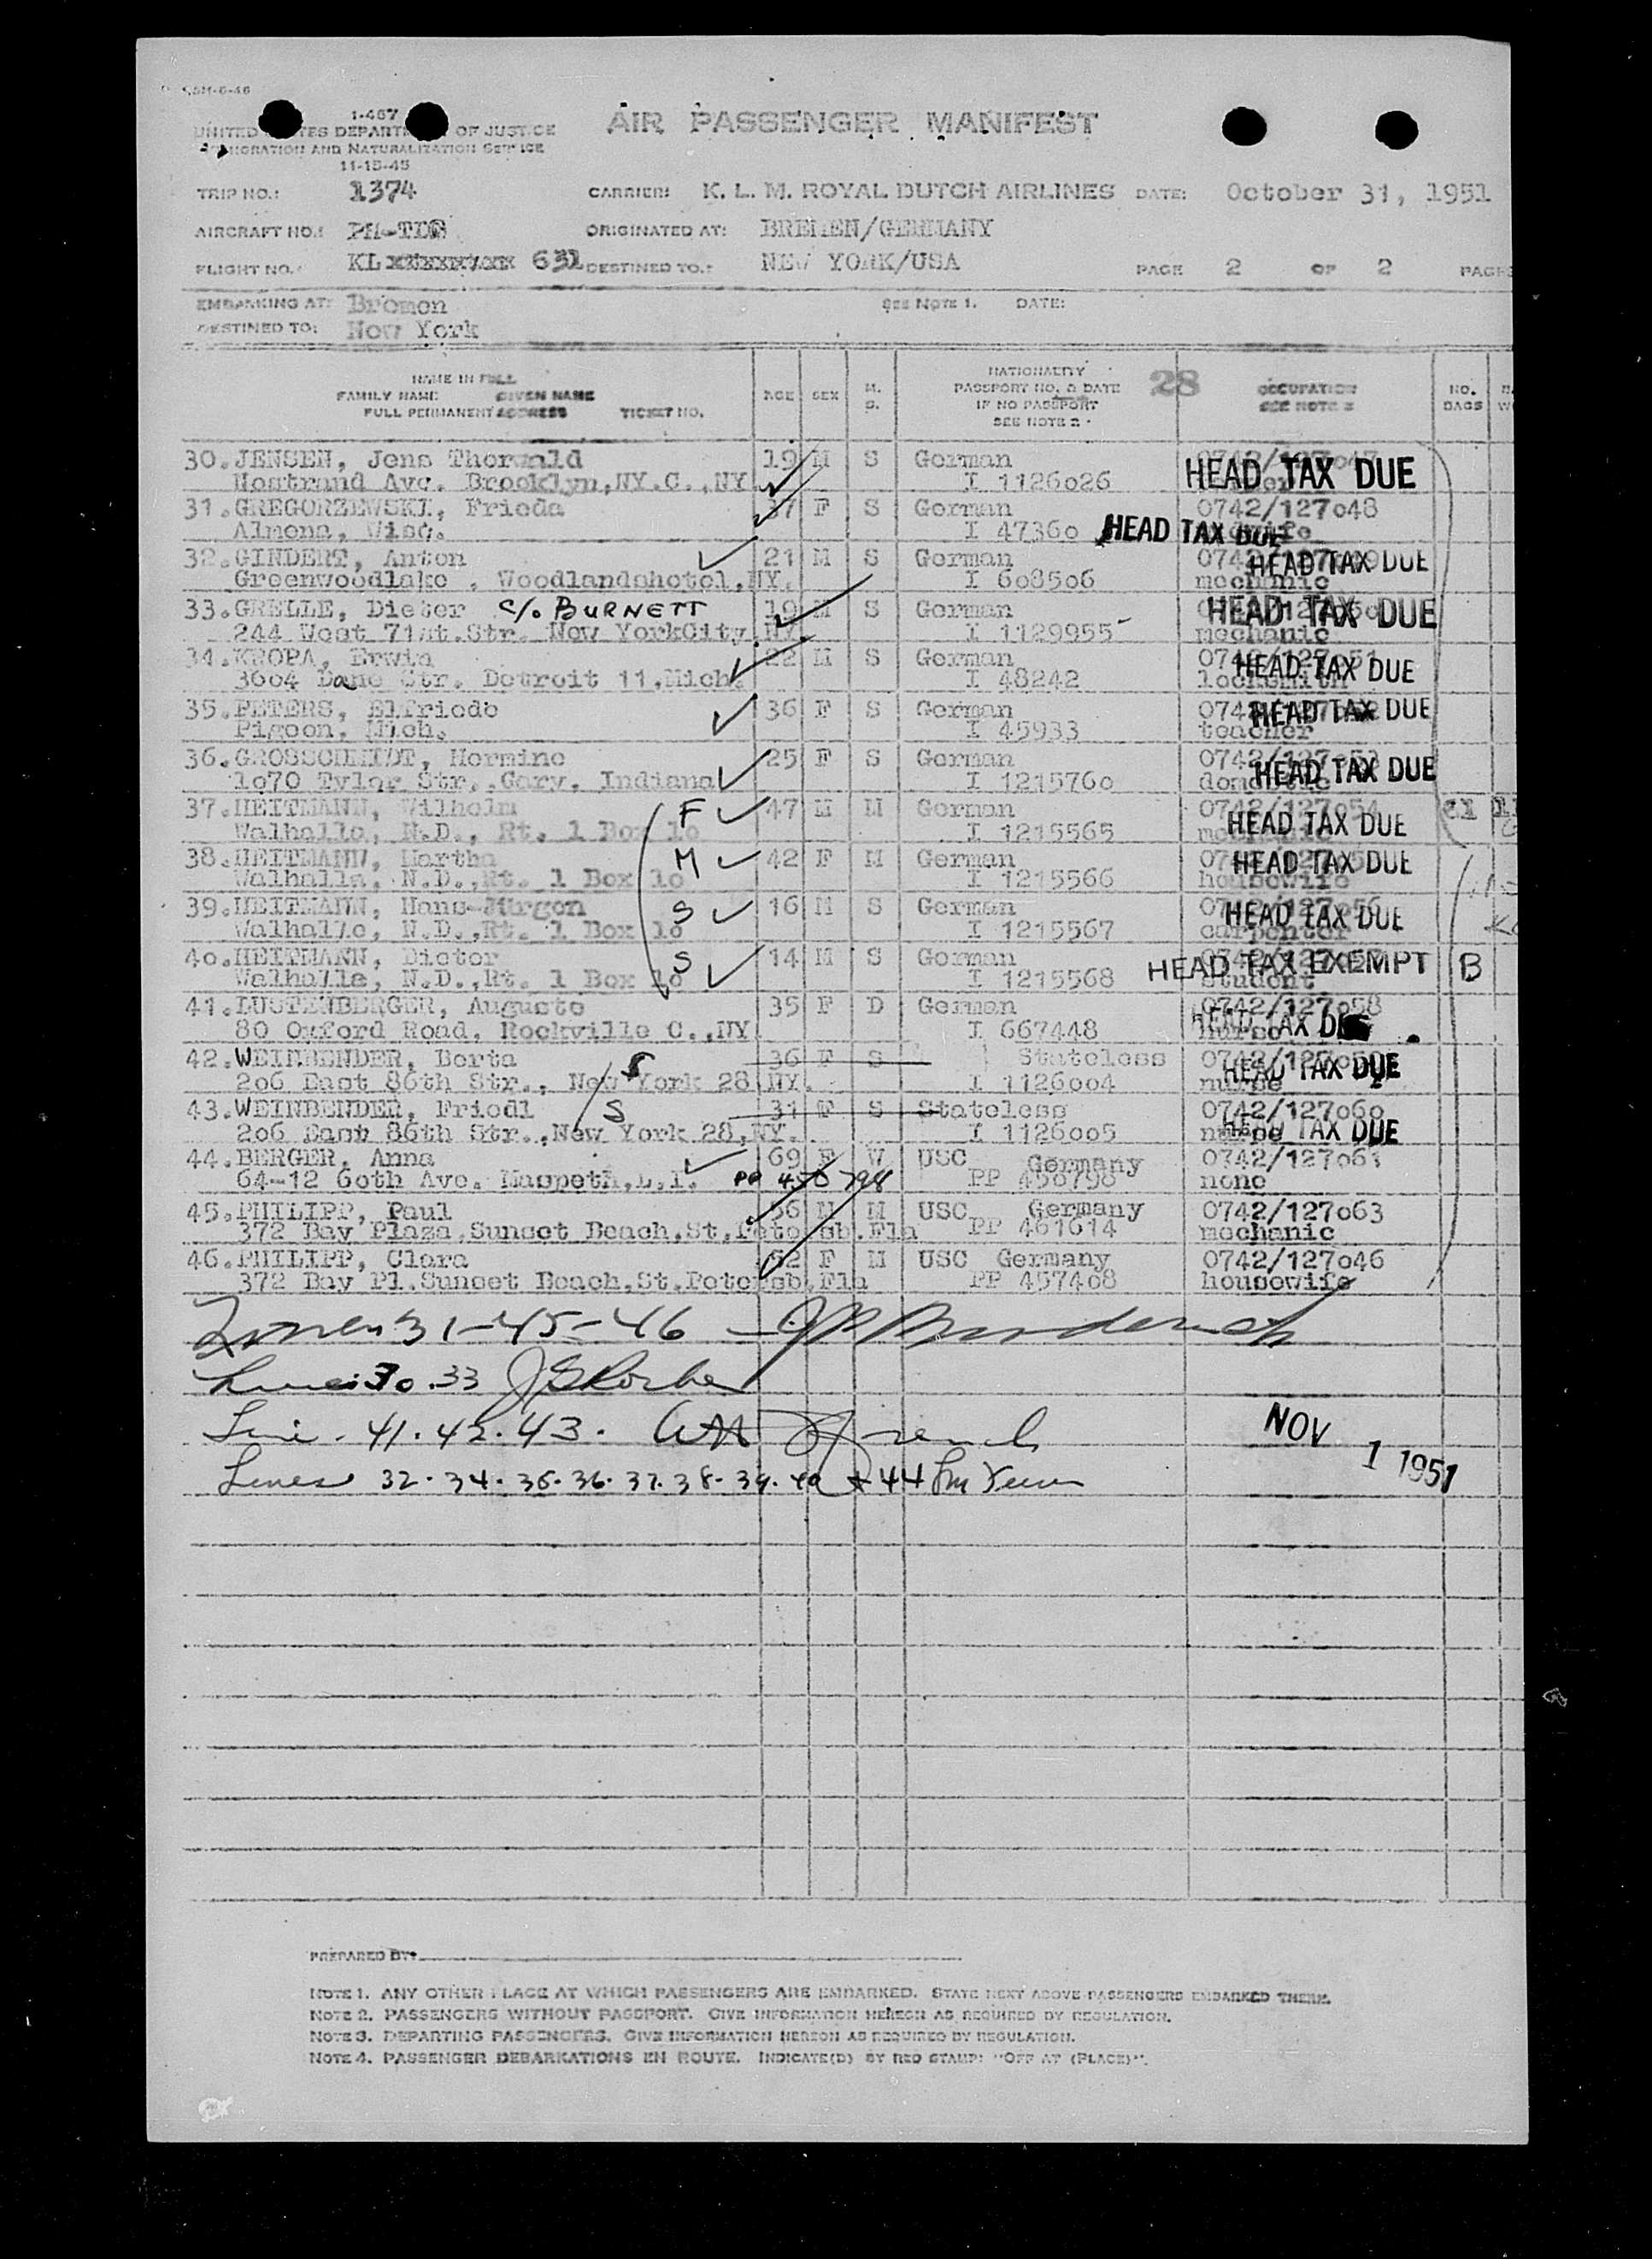 I-467
UNITED STATES DEPARTMENT OF JUSTICE
IMMIGRATION AND NATURALIZATION SERVICE
11-15-45
AIR PASSENGER MANIFEST
TRIP NO.: 1374 CARRIER: K. L. M. ROYAL DUTCH AIRLINES DATE: October 31, 1951
AIRCRAFT NO.: ORIGINATED AT: BREMEN/GERMANY
FLIGHT NO.: KL 631 DESTINED TO.: NEW YORK/USA PAGE 2 OF 2 PAGES
EMBARKING AT: Bremen SEE NOTE 1. DATE:
DESTINED TO: New York
NAME IN FULL
FAMILY NAME GIVEN NAME
FULL PERMANENT ADDRESS TICKET NO.
AGE SEX M. S.
NATIONALITY
PASSPORT NO. & DATE
IF NO PASSPORT
SEE NOTE 2
28
OCCUPATION
SEE NOTE 2
NO. BAGS
30. JENSEN, Jens Thorwald 19 M S German
Nostrand Ave. Brooklyn,NY.C.,NY I 1126026 HEAD TAX DUE
31. GREGORZEWSKI, Frieda 37 F S German 0742/127o48
Almena, Wisc. I 4736o HEAD TAX DUE
32. GINDERT, Anton 21 M S German HEAD TAX DUE
Greenwoodlake , Woodlandshotel,NY. I 6o85o6 mechanic
33. GRELLE, Dieter c/o BURNETT 19 M S German HEAD TAX DUE
244 West 71st.Str. New YorkCity,NY I 1129955 mechanic
34. KROPA, Erwin 22 M S German 0742/127o51
36o4 Dane Str. Detroit 11,Mich. I 48242 locksmith HEAD TAX DUE
35. PETERS, Elfriede 36 F S German HEAD TAX DUE
Pigeon, Mich. I 45933 teacher
36. GROSSCHMIDT, Hermine 25 F S German
1o70 Tyler Str.,Gary, Indiana I 121576o HEAD TAX DUE
37. HEITMANN, Wilhelm F 47 M M German 0742/127o54
Walhalla, N.D., Rt. 1 Box 1o I 1215565 HEAD TAX DUE
38. HEITMANN, Martha M 42 F M German HEAD TAX DUE
Walhalla, N.D.,Rt. 1 Box 1o I 1215566 housewife
39. HEITMANN, Hans-Jürgen S 16 M S German HEAD TAX DUE
Walhalla, N.D.,Rt. 1 Box 1o I 1215567 carpenter
4o. HEITMANN, Dieter S 14 M S German HEAD TAX EXEMPT B
Walhalla, N.D.,Rt. 1 Box 1o I 1215568 student
41. LUSTENBERGER, Auguste 35 F D German 0742/127o58
80 Oxford Road, Rockville C.,NY I 667448 nurse HEAD TAX DUE
42. WEINBENDER, Berta S 36 F S Stateless
2o6 East 86th Str., New York 28,NY. I 1126oo4 nurse HEAD TAX DUE
43. WEINBENDER, Friedl S 31 F S Stateless 0742/127o6o
2o6 East 86th Str.,New York 28,NY. I 1126oo5 nurse HEAD TAX DUE
44. BERGER, Anna 69 F W USC Germany 0742/127o61
64-12 60th Ave. Maspeth,L.I. PP 450798 PP 450798 none
45. PHILIPP, Paul 56 M M USC Germany 0742/127o63
372 Bay Plaza,Sunset Beach,St.Petersb.Fla PP 461614 mechanic
46. PHILIPP, Clara 62 F M USC Germany 0742/127o46
372 Bay Pl.Sunset Beach,St.Petersb.Fla PP 4574o8 housewife
Lines 31-45-46
Lines 30.33
Line - 41.42.43. French
Lines 32.34.35.36.37.38.39.40 & 44
NOV 1 1951
PREPARED BY:
NOTE 1. ANY OTHER PLACE AT WHICH PASSENGERS ARE EMBARKED. STATE NEXT ABOVE PASSENGERS EMBARKED THERE.
NOTE 2. PASSENGERS WITHOUT PASSPORT. GIVE INFORMATION HEREON AS REQUIRED BY REGULATION.
NOTE 3. DEPARTING PASSENGERS. GIVE INFORMATION HEREON AS REQUIRED BY REGULATION.
NOTE 4. PASSENGER DEBARKATIONS EN ROUTE. INDICATE(D) BY RED STAMP: "OFF AT (PLACE)".